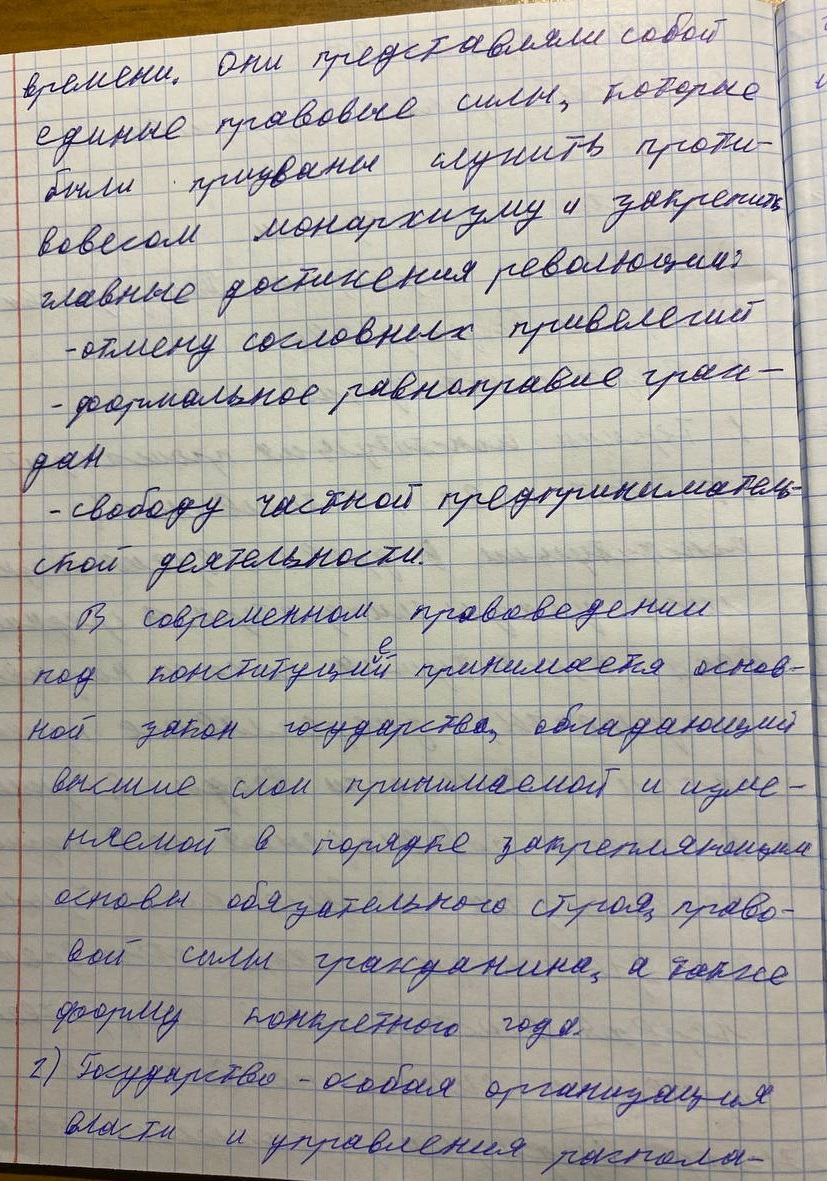 времени. Они представляли собой
единые правовые силы, которые
были призваны служить проти-
вовесом монархизму и закрепить
главные достижения революции:
-отмену сословных привелегий
-формальное равноправие граж-
дан
-свободу частной предприниматель-
ской деятельности.
В современном правоведении
под конституцией принимается основ-
ной закон государства, обладающий
высшие слои принимаемой и изме-
няемой в порядке закрепляющим
основы обязательного строя, право-
вой силы гражданина, а также
форму конкретного года.
2) Государство - особая организация
власти и управления распола-